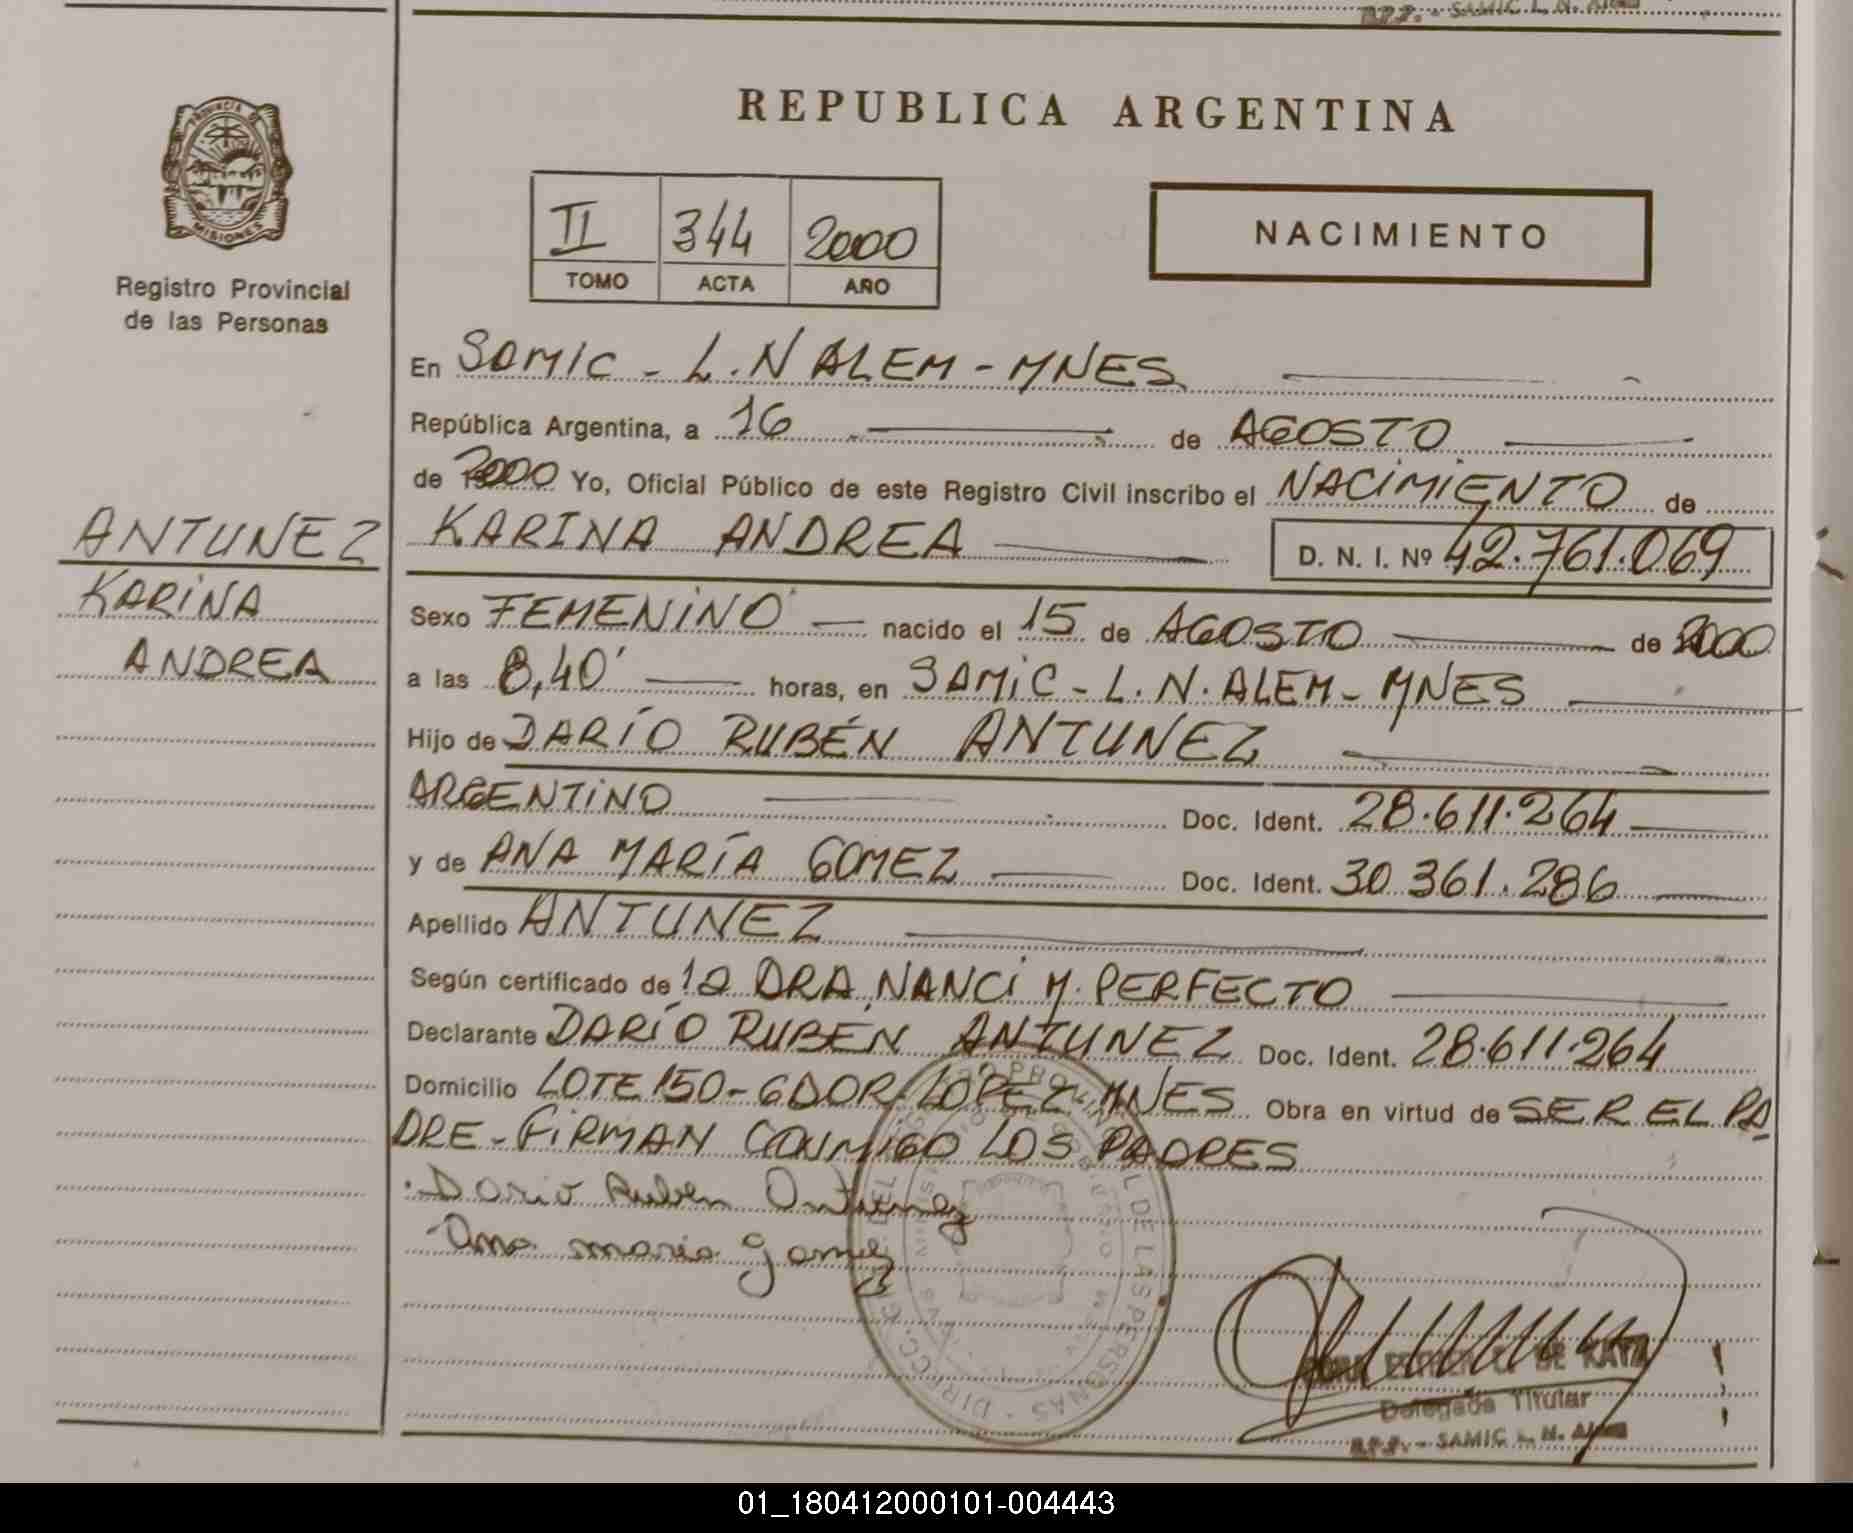 SAMIC L. N. ALEM
REPUBLICA ARGENTINA
PROVINCIA DE
MISIONES
Registro Provincial
de las Personas
II 344 2000
TOMO ACTA AÑO
NACIMIENTO
En SAMIC - L. N ALEM - MNES
República Argentina, a 16 de AGOSTO
de 2000 Yo, Oficial Público de este Registro Civil inscribo el NACIMIENTO de
KARINA ANDREA D. N. I. Nº 42.761.069
ANTUNEZ
KARINA
ANDREA
Sexo FEMENINO nacido el 15 de AGOSTO de 2000
a las 8,40' horas, en SAMIC - L. N. ALEM - MNES
Hijo de DARÍO RUBÉN ANTUNEZ
ARGENTINO Doc. Ident. 28.611.264
y de ANA MARÍA GOMEZ Doc. Ident. 30 361.286
Apellido ANTUNEZ
Según certificado de la DRA. NANCI M. PERFECTO
Declarante DARÍO RUBÉN ANTUNEZ Doc. Ident. 28.611.264
Domicilio LOTE 150 - GDOR. LOPEZ MNES Obra en virtud de SER EL PA
DRE - FIRMAN CONMIGO LOS PADRES
Dario Ruben Antunez
Ana maria gomez
DE KATZ
Delegada Titular
SAMIC L. N. ALEM
01_180412000101-004443